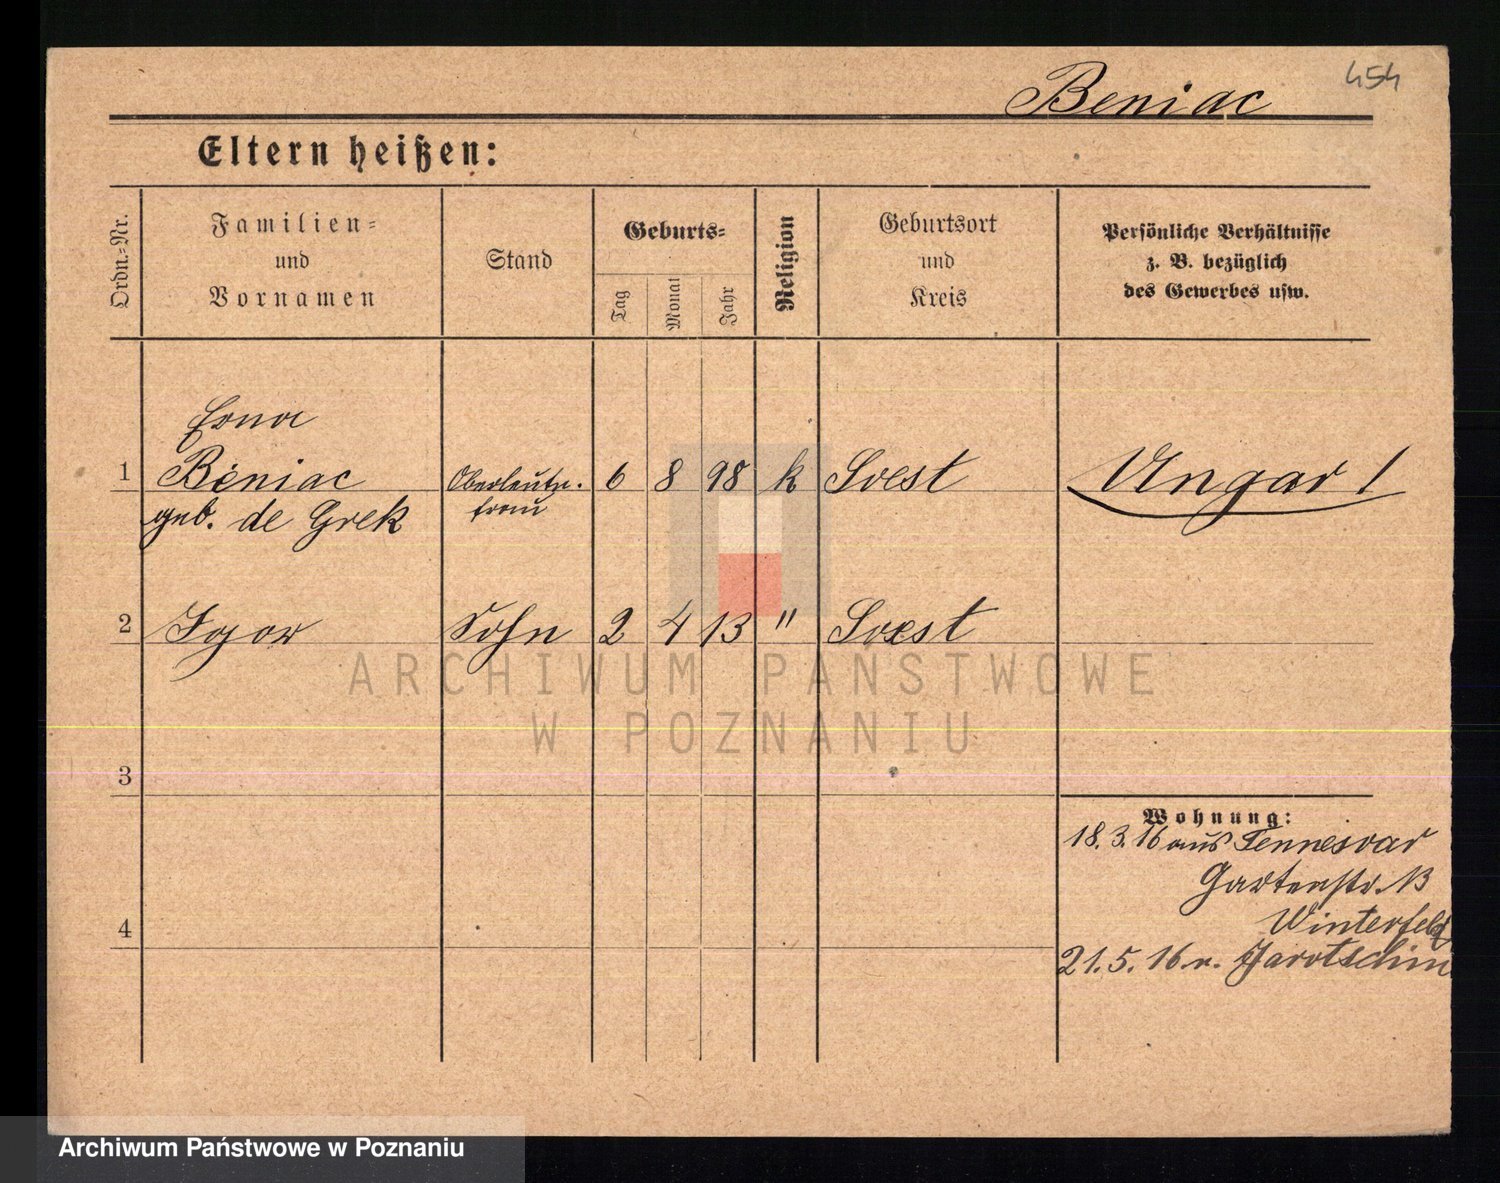 454
Beniac
Eltern heißen:
Ordn.-Nr.
Familien-
und
Vornamen
Stand
Geburts-
Tag
Monat
Jahr
Religion
Geburtsort
und
Kreis
Persönliche Verhältnisse
z. B. bezüglich
des Gewerbes usw.
Erna
1 Beniac Oberleutn. 6 8 98 k Soest Ungar!
geb. de Grek frau
2 Igor Sohn 2 4 13 " Soest
ARCHIWUM PAŃSTWOWE
W POZNANIU
3
Wohnung:
18.3.16 aus Temesvar
Gartenstr. 13
Winterfeld
4
21.5.16 n. Jarotschin
Archiwum Państwowe w Poznaniu